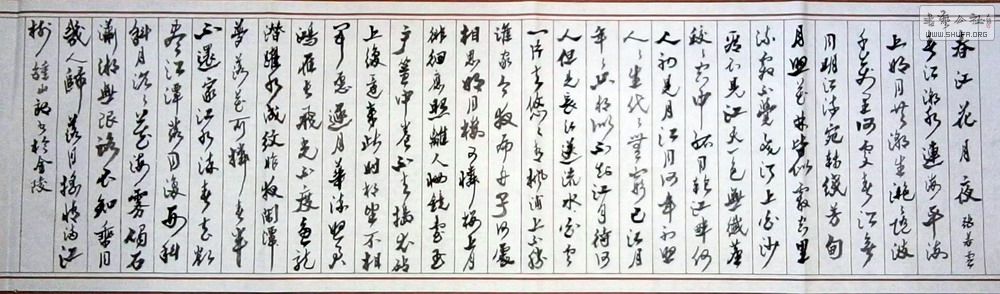 春江花月夜 張若虛
春江潮水連海平海
上明月共潮生灩〻隨波
千萬里何處春江無
月明江流宛轉繞芳甸
月照花林皆似霰空里
流霜不覺飛汀上白沙
看不見江天一色無纖塵
皎〻空中孤月輪江畔何
人初見月江月何年初照
人人生代〻無窮已江月
年〻只相似不知江月待何
人但見長江送流水白雲
一片去悠〻青楓浦上不勝
誰家今夜扁舟子何處
相思明月樓可憐樓上月
徘徊應照離人妝鏡臺玉
戶簾中卷不去搗衣砧
上拂還來此時相望不相
聞願逐月華流照君
鴻雁長飛光不度魚龍
潛躍水成紋昨夜閑潭
夢落花可憐春半
不還家江水流春去欲
盡江潭落月復西斜
斜月沉〻藏海霧碣石
瀟湘無限路不知乘月
幾人歸落月搖情滿江
樹 鍾山 書於金陵
WWW.SHUFA.ORG